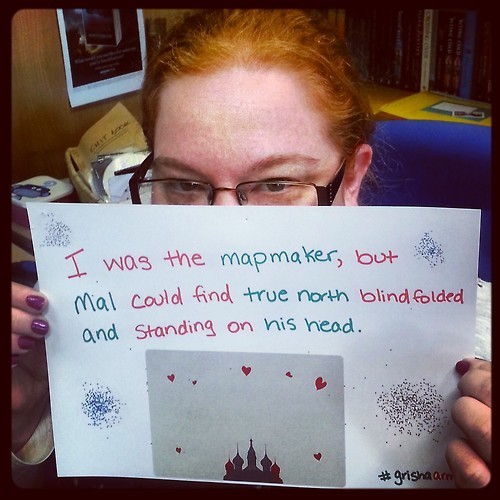 I was the mapmaker, but
Mal could find true north blindfolded
and standing on his head.